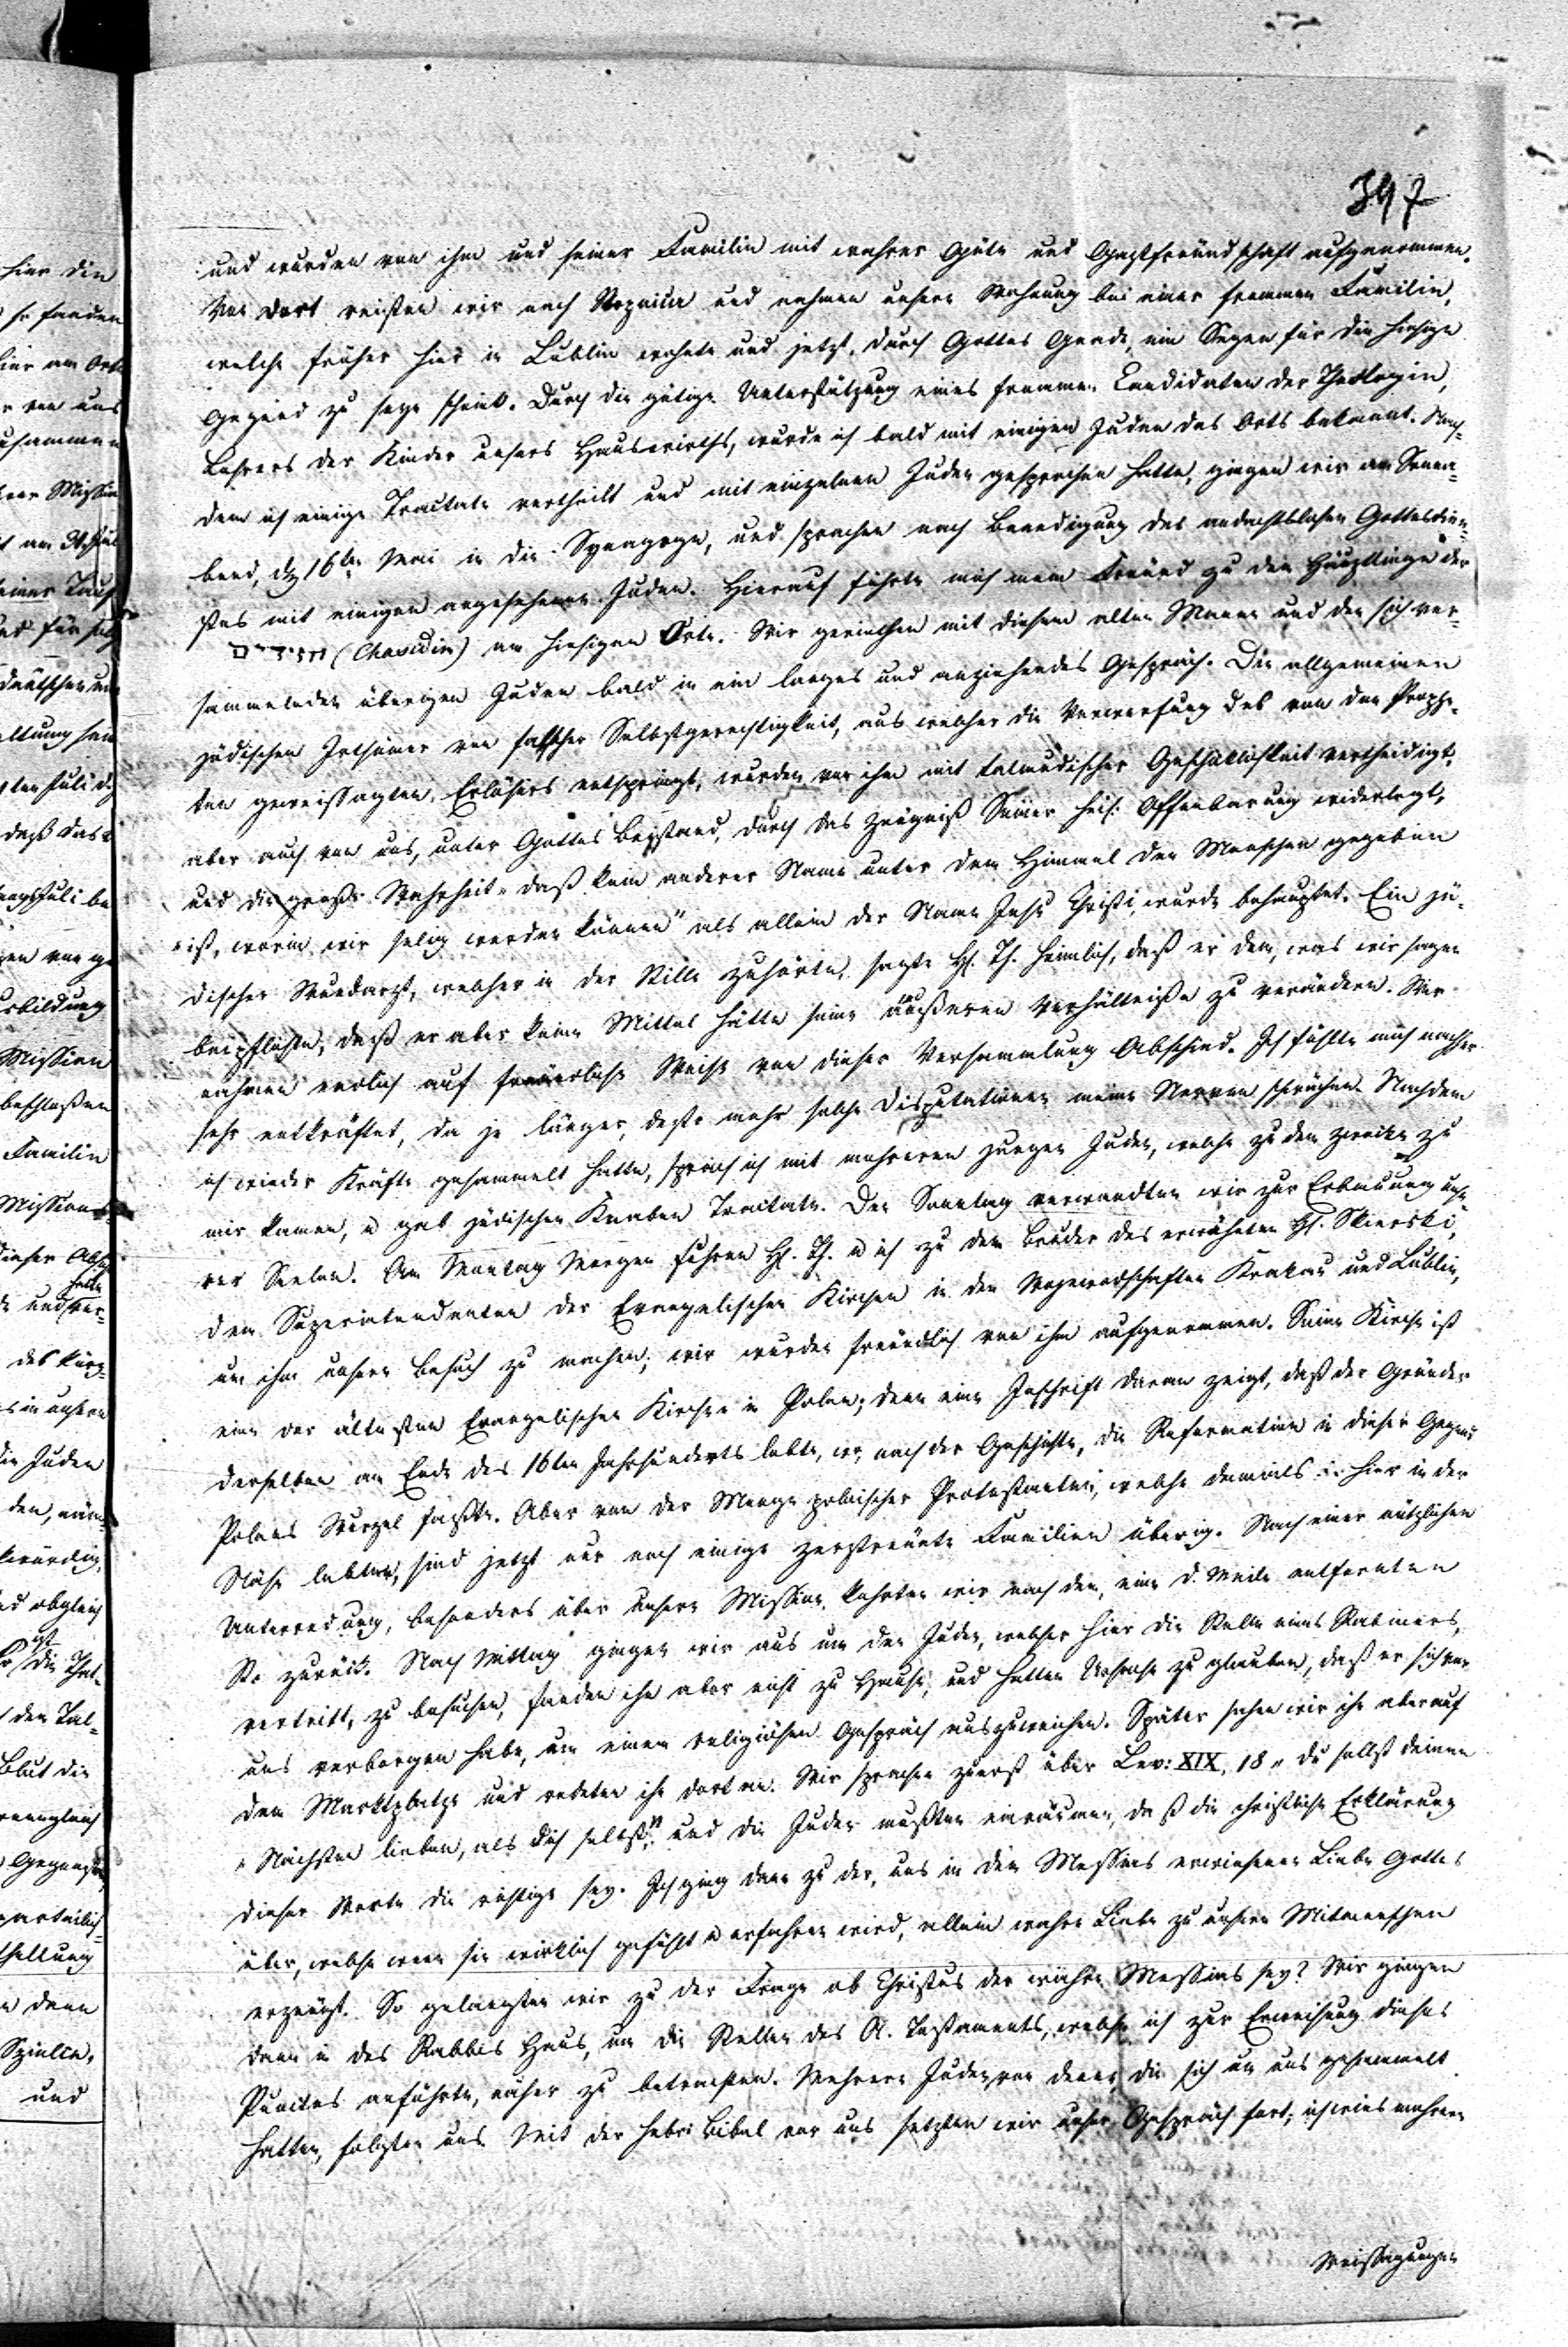 347
und wurden von ihm und seiner Familie mit wahrer Güte und Gastfreundschaft aufgenommen.
Von dort reisten wir nach und nahmen unsere Wohnung bei einer frommen Familie,
welche früher hier in Lublin wohnte und jetzt, durch Gottes Gnade, ein Segen für die hiesige
Gegend zu seyn scheint. Durch die gütige Unterstützung eines frommen Candidaten der Theologie,
Lehrers der Kinder unsers Hauswirths, wurde ich bald mit einigen Juden des Orts bekannt. Nach-
dem ich einige Tractate vertheilt und mit einzelnen Juden gesprochen hatte, gingen wir am Sonna-
bend, d. 16ten Mai in die Synagoge, und sprachen nach Beendigung des andachtslosen Gottesdien-
stes mit einigen angesehenen Juden. Hierauf führte mich mein Freund zu dem Häuptlinge der
חסידים (Chasidim) am hiesigen Orte. Wir geriethen mit diesem alten Manne und den sich ver-
sammelnden übrigen Juden bald in ein langes und anziehendes Gespräch. Die allgemeinen
jüdischen Irthümer von falscher Selbstgerechtigkeit, aus welcher die Verwerfung des von den Prophe-
ten geweissagten Erlösers entspringt, wurden von ihm mit talmudischer Geschicklichkeit vertheidigt,
aber auch von uns, unter Gottes Beystand, durch das Zeugniß Seiner heil: Offenbarung widerlegt,
und die große Wahrheit „daß kein anderer Name unter dem Himmel den Menschen gegeben
„ist, worin wir selig werden können" als allein der Name Jesu Christi, wurde behauptet. Ein jü-
discher Wundarzt, welcher in der Stille zuhörte, sagte H. Th. heimlich, daß er dem, was wir sagen
beipflichte, daß er aber keine Mittel hätte seine äußeren Verhältniße zu verändern. Wir
nahmen endlich auf freundliche Weise von dieser Versammlung Abschied. Ich fühlte mich nachher
sehr entkräftet, da je länger, desto mehr solche Disputationen meine Nerven schwächen. Nachdem
ich wieder Kräfte gesammelt hatte, sprach ich mit mehreren jungen Juden, welche zu dem Zwecke zu
mir kamen, u gab jüdischen Knaben Tractate. Den Sonntag verwandten wir zur Erbauung uns-
rer Seelen. Am Montag Morgen fuhren H. Th. u ich zu dem Bruder des erwähnten H. Skierski,
dem Superintendenten der Evangelischen Kirchen in den Woyewodschaften Krakau und Lublin,
um ihm unsern Besuch zu machen; wir wurden freundlich von ihm aufgenommen. Seine Kirche ist
eine der ältesten Evangelischen Kirchen in Polen; denn eine Inschrift daran zeigt, daß der Gründer
derselben am Ende des 16ten Jahrhunderts lebte, wo, nach der Geschichte, die Reformation in dieser Gegend
Polens Wurzel faßte. Aber von der Menge polnischer Protestanten, welche damals hier in der
Nähe lebten, sind jetzt nur noch einige zerstreute Familien übrig. Nach einer nützlichen
Unterredung, besonders über unsere Mission, kehrten wir nach dem, eine d. Meile entfernten
St. zurück. Nach Mittag gingen wir aus um den Juden, welcher hier die Stelle eines Rabiners,
vertritt, zu besuchen, fanden ihn aber nicht zu Hause, und hatten Ursache zu glauben, daß er sich vor
uns verborgen habe, um einem religiösen Gespräch auszuweichen. Später sahen wir ihn aber auf
dem Marktplatze und redeten ihn dort an. Wir sprachen zuerst über Lev: XIX, 18 „Du sollst deinen
„Nächsten lieben, als dich selbst;" und die Juden mußten einräumen, daß die christliche Erklärung
dieser Worte die richtige sey. Ich ging dann zu der, uns in dem Messias erwiesenen Liebe Gottes
über, welche wenn sie wirklich gefühlt u erfahren wird, allein wahre Liebe zu unsern Mitmenschen
erzeugt. So gelangten wir zu der Frage ob Christus der wahre Messias sey? Wir gingen
dann in des Rabbis Haus, um die Stellen des A. Testaments, welche ich zur Erweisung dieses
Punctes anführte, näher zu betrachten. Mehrere Juden von denen, die sich um uns gesammelt
hatten, folgten uns. Mit der hebr: Bibel vor uns setzten wir unser Gespräch fort; ich wies mehrere
Weissagungen